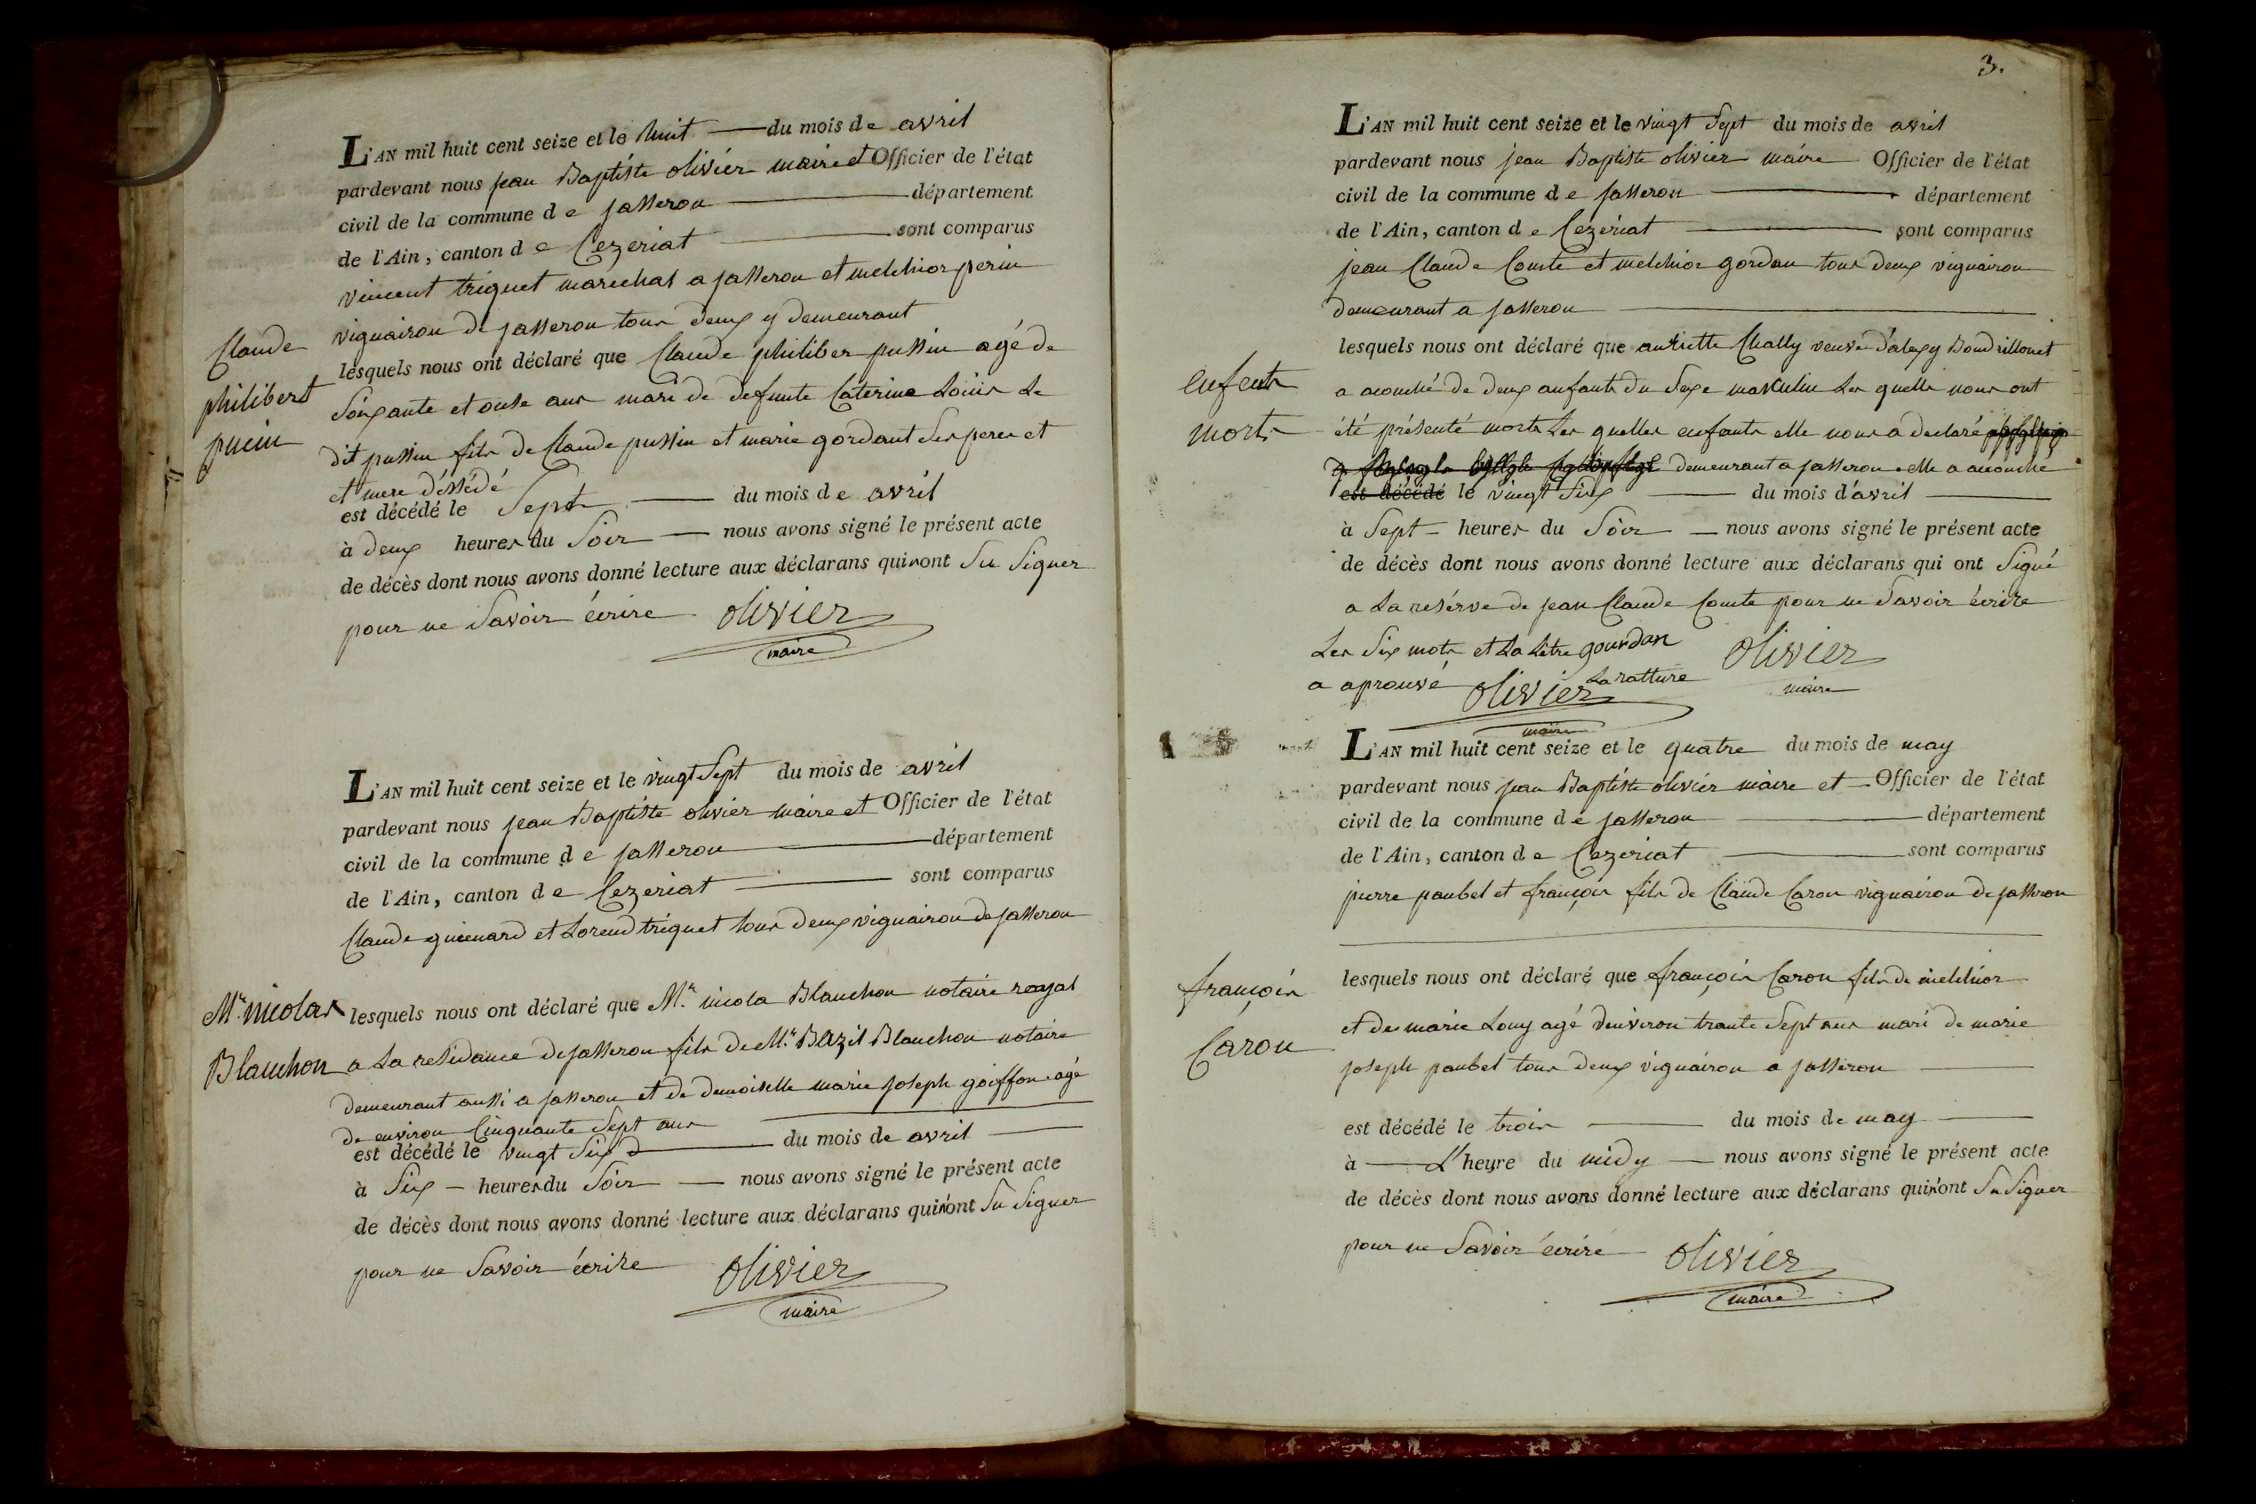 L'AN mil huit cent seize et le huit du mois de avril
pardevant nous jean Baptiste olivier maire et Officier de l'état
civil de la commune de jasseron département
de l'Ain, canton de Cezeriat sont comparus
vincent triquet maréchal a jasseron et melchior perin
vignairon de jasseron tous deux y demeurant
Claude
philibert
pucin
lesquels nous ont déclaré que Claude philiber pussin agé de
soixante et onse ans mari de defunte Caterine Loüis Le
dit pussin fils de Claude pussin et marie gordant ses peres et
et mere déssédé
est décédé le Sept du mois de avril
à deux heures du Soir nous avons signé le présent acte
de décès dont nous avons donné lecture aux déclarans qui nont Su Signer
pour ne Savoir écrire olivier
maire
L'AN mil huit cent seize et le vingt Sept du mois de avril
pardevant nous jean Baptiste olivier maire et Officier de l'état
civil de la commune de jasseron département
de l'Ain, canton de Cezeriat sont comparus
Claude guienard et Lorend triquet tous deux vignairon de jasseron
Mr. nicolas
Blanchon
lesquels nous ont déclaré que Mr. nicola Blanchon notaire royal
a La residance de jasseron fils de Mr. Bazil Blanchon notaire
demeurant aussi a jasseron et de demoiselle marie joseph goiffon agé
de environ Cinquante Sept ans
est décédé le vingt Six du mois de avril
à Six heures du Soir nous avons signé le présent acte
de décès dont nous avons donné lecture aux déclarans qui n'ont Su Signer
pour ne Savoir écrire olivier
maire
3.
L'AN mil huit cent seize et le vingt Sept du mois de avril
pardevant nous jean Baptiste olivier maire Officier de l'état
civil de la commune de jasseron département
de l'Ain, canton de Cezériat sont comparus
jean Claude Comte et melchior gordan tous deux vignairon
demeurant a jasseron
enfents
morts
lesquels nous ont déclaré que Chally veuve d'alexy Boudrillonet
a acouché de deux anfants du Sexe masculin Les quelle nous ont
été présenté morts Les quelles enfents elle nous a declaré
demeurant a jasseron elle a acouché
est décédé le vingt Six du mois d'avril
à Sept heures du Soir nous avons signé le présent acte
de décès dont nous avons donné lecture aux déclarans qui ont Signé
a La resérve de jean Claude Comte pour ne Savoir écrire
Les Six mots et La Letre gourdan olivier
a aprouvé La ratture maire
olivier
maire
L'AN mil huit cent seize et le quatre du mois de may
pardevant nous jean Baptiste olivier maire et Officier de l'état
civil de la commune de jasseron département
de l'Ain, canton de Cezeriat sont comparus
pierre paubel et françois fils de Claude Caron vignairon de jasseron
françois
Caron
lesquels nous ont déclaré que françois Caron fils de melchior
et de marie Louy agé denviron trante Sept ans mari de marie
joseph paubel tous deux vignairon a jasseron
est décédé le trois du mois de may
à L'heure du midy nous avons signé le présent acte
de décès dont nous avons donné lecture aux déclarans qui n'ont Su Signer
pour ne Savoir écrire olivier
maire